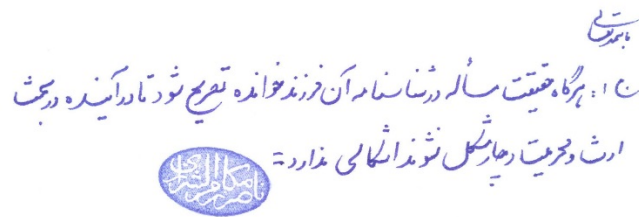 باسمه تعالی
ج ۱: هرگاه حقیقت مسأله در شناسنامه آن فرزندخوانده تصریح شود تا در آینده در بحث
ارث و محرمیت دچار مشکل نشوند اشکالی ندارد
ناصر مکارم الشیرازی